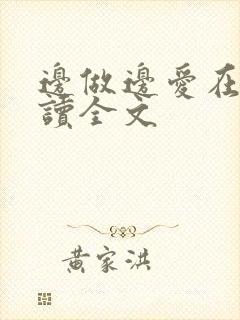 邊做邊愛在
讀全文
黃家洪